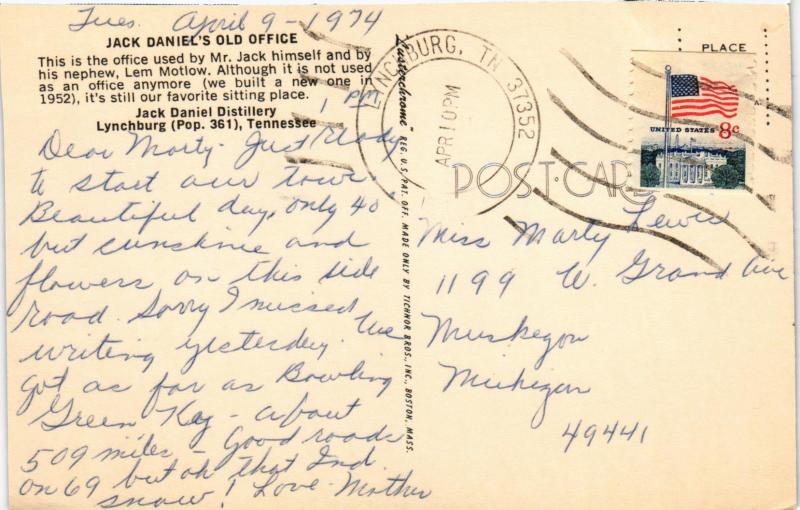 Tues. April 9 - 1974
JACK DANIEL'S OLD OFFICE
This is the office used by Mr. Jack himself and by
his nephew, Lem Motlow. Although it is not used
as an office anymore (we built a new one in
1952), it's still our favorite sitting place.
Jack Daniel Distillery
Lynchburg (Pop. 361), Tennessee
1 PM
Dear Marty - Just ready
to start our tour.
Beautiful day, only 40
but sunshine and
flowers on this side
road. Sorry I missed
writing yesterday. We
got as far as Bowling
Green Key - about
509 miles - Good roads
on 69 but oh that Ind.
snow! Love - Mother
"Lusterchrome" REG. U.S. PAT. OFF. MADE ONLY BY TICHNOR BROS., INC., BOSTON, MASS.
LYNCHBURG, TN 37352
APR 10 PM
PLACE
UNITED STATES 8c
POST CARD
Miss Marty Lewis
1199 W. Grand Ave
Muskegon
Michigan
49441